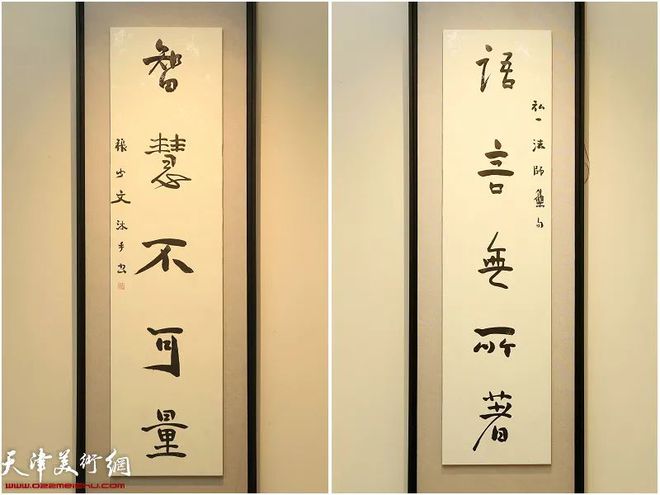 語言無所著
弘一法師集句
智慧不可量
張少文沐手書
天津美術網
www.022meishu.com